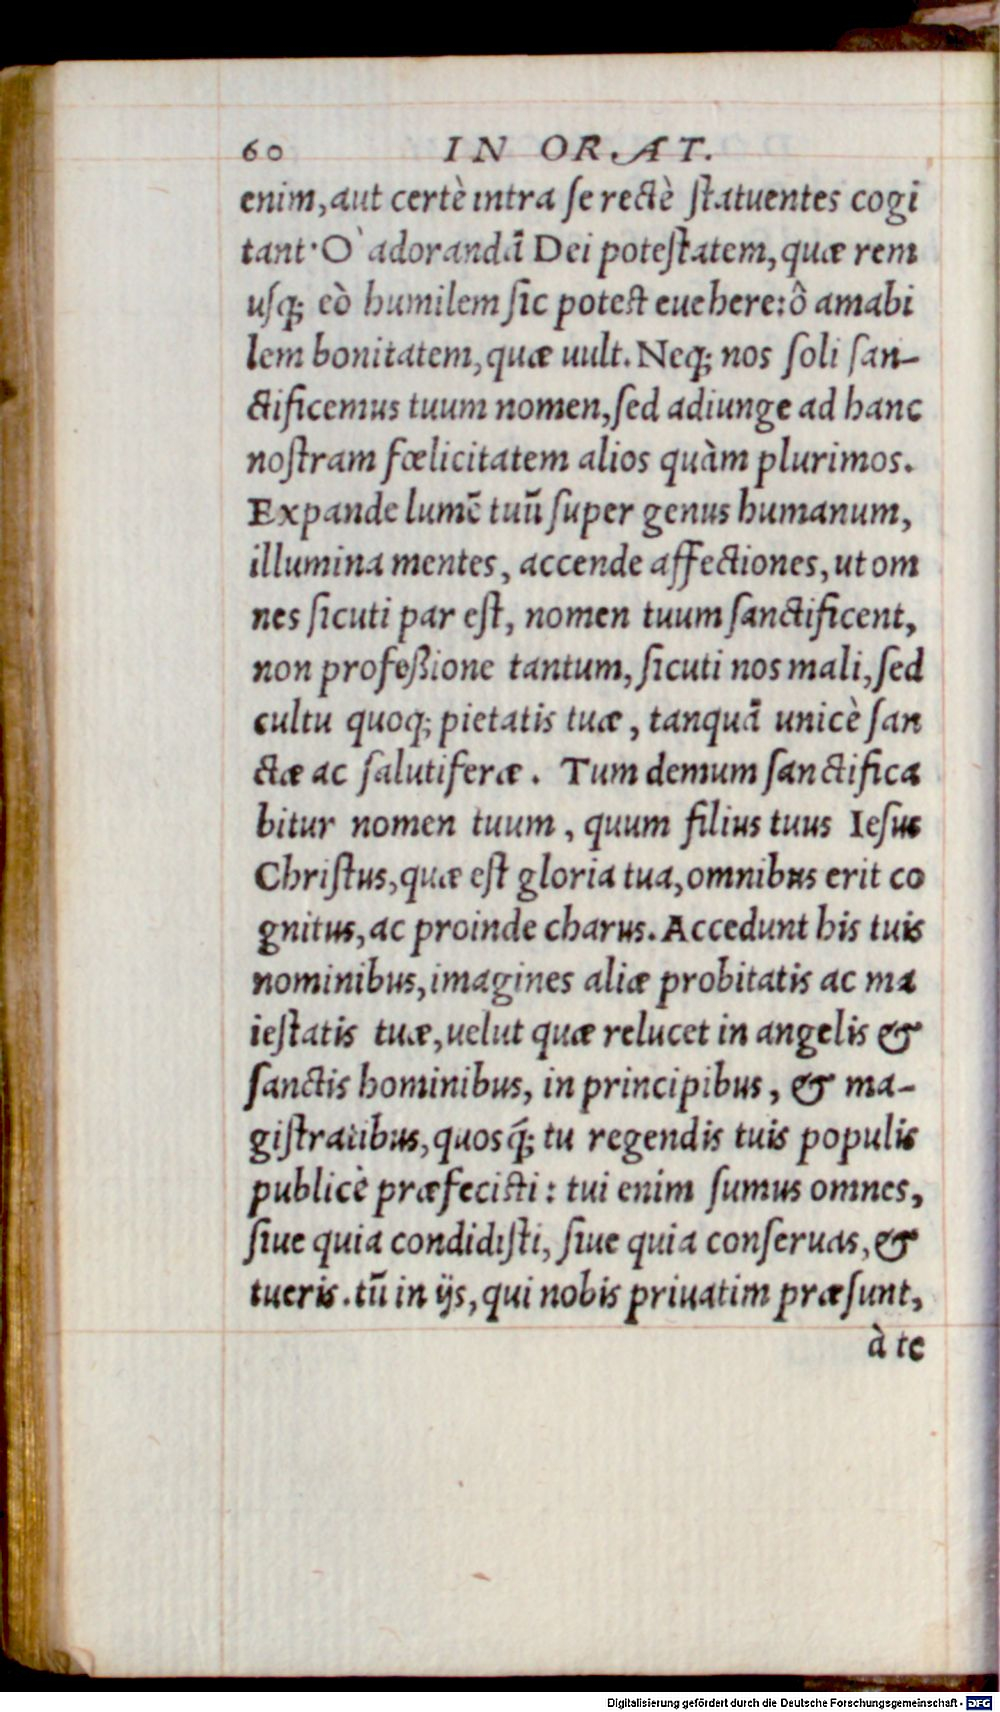 60 IN ORAT.
enim, aut certè intra ſe rectè ſtatuentes cogi
tant· O` adorandā Dei poteſtatem, quæ rem
uſq; eò humilem ſic poteſt euehere: ô amabi
lem bonitatem, quæ uult. Neq; nos ſoli ſan-
ctificemus tuum nomen, ſed adiunge ad hanc
noſtram fœlicitatem alios quàm plurimos.
Expande lumē tuū ſuper genus humanum,
illumina mentes, accende affectiones, ut om
nes ſicuti par eſt, nomen tuum ſanctificent,
non profeßione tantum, ſicuti nos mali, ſed
cultu quoq; pietatis tuæ, tanquā unicè ſan
ctæ ac ſalutiferæ. Tum demum ſanctifica
bitur nomen tuum, quum filius tuus Ieſus
Chriſtus, quæ eſt gloria tua, omnibus erit co
gnitus, ac proinde charus. Accedunt his tuis
nominibus, imagines aliæ probitatis ac ma
ieſtatis tuæ, uelut quæ relucet in angelis &
ſanctis hominibus, in principibus, & ma-
giſtratibus, quosq́; tu regendis tuis populis
publicè præfeciſti: tui enim ſumus omnes,
ſiue quia condidiſti, ſiue quia conſeruas, &
tueris. tū in ijs, qui nobis priuatim præſunt,
à te
Digitalisierung gefördert durch die Deutsche Forschungsgemeinschaft - DFG